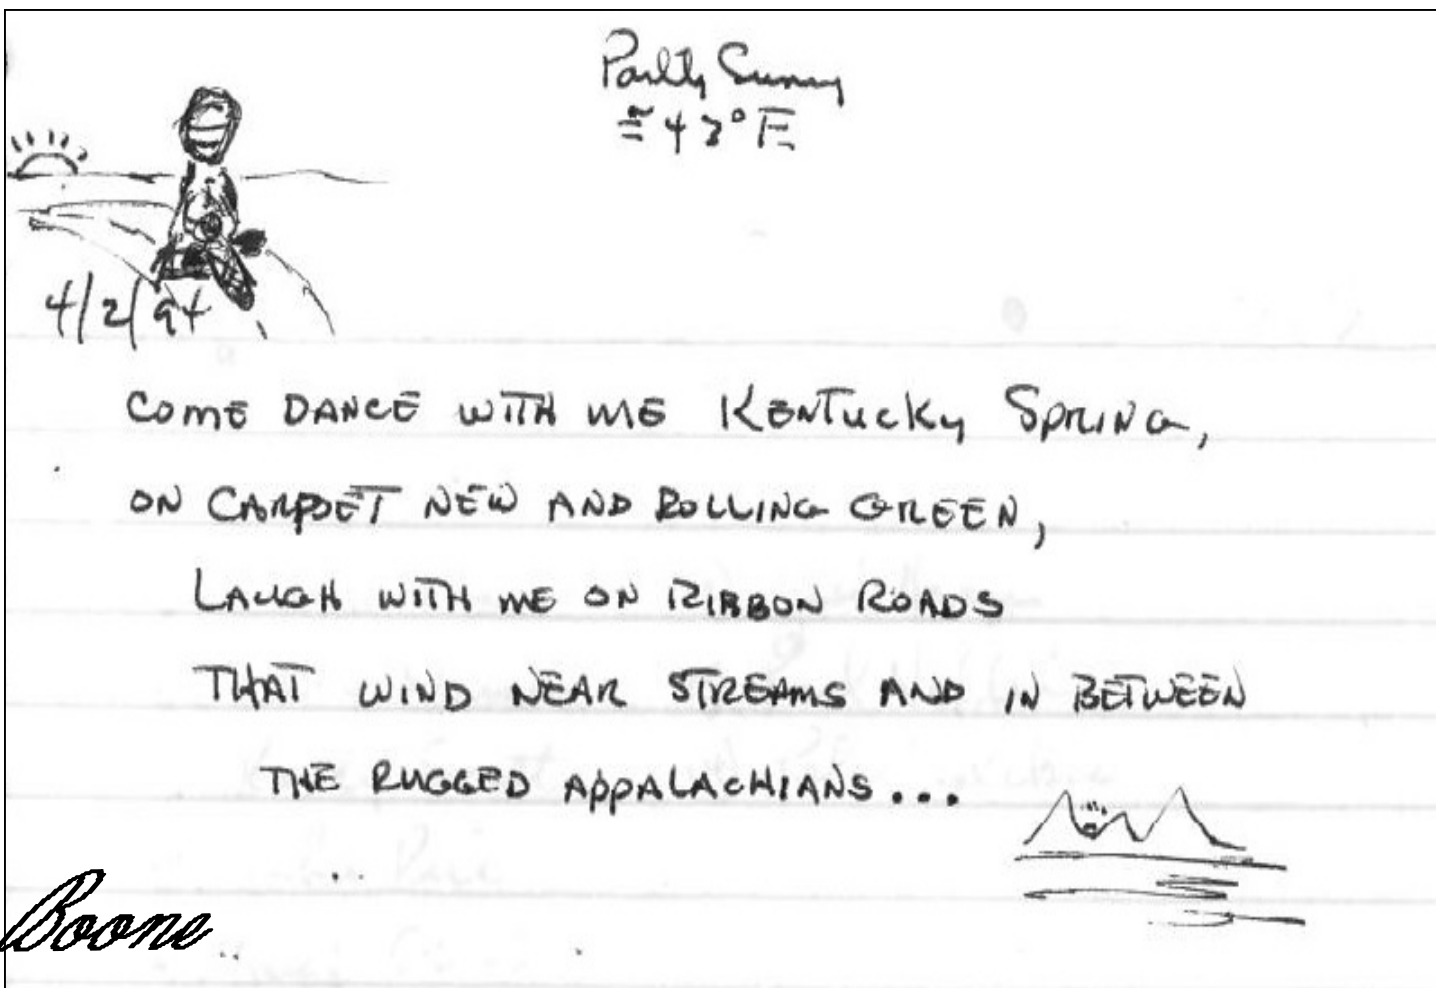 Partly Sunny
≅ 43° F
4/2/94
COME DANCE WITH ME KENTUCKY SPRING,
ON CARPET NEW AND ROLLING GREEN,
LAUGH WITH ME ON RIBBON ROADS
THAT WIND NEAR STREAMS AND IN BETWEEN
THE RUGGED APPALACHIANS...
Boone